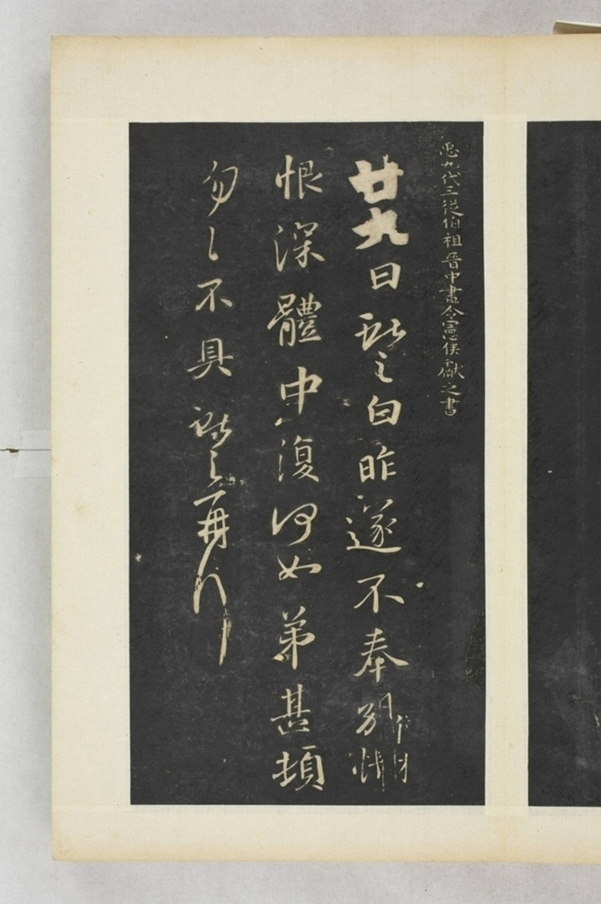 臣九代三從伯祖晉中書令憲侯獻之書
廿九日獻之白昨遂不奉別悵
恨深體中復何如弟甚頓
勿勿不具獻之再拜